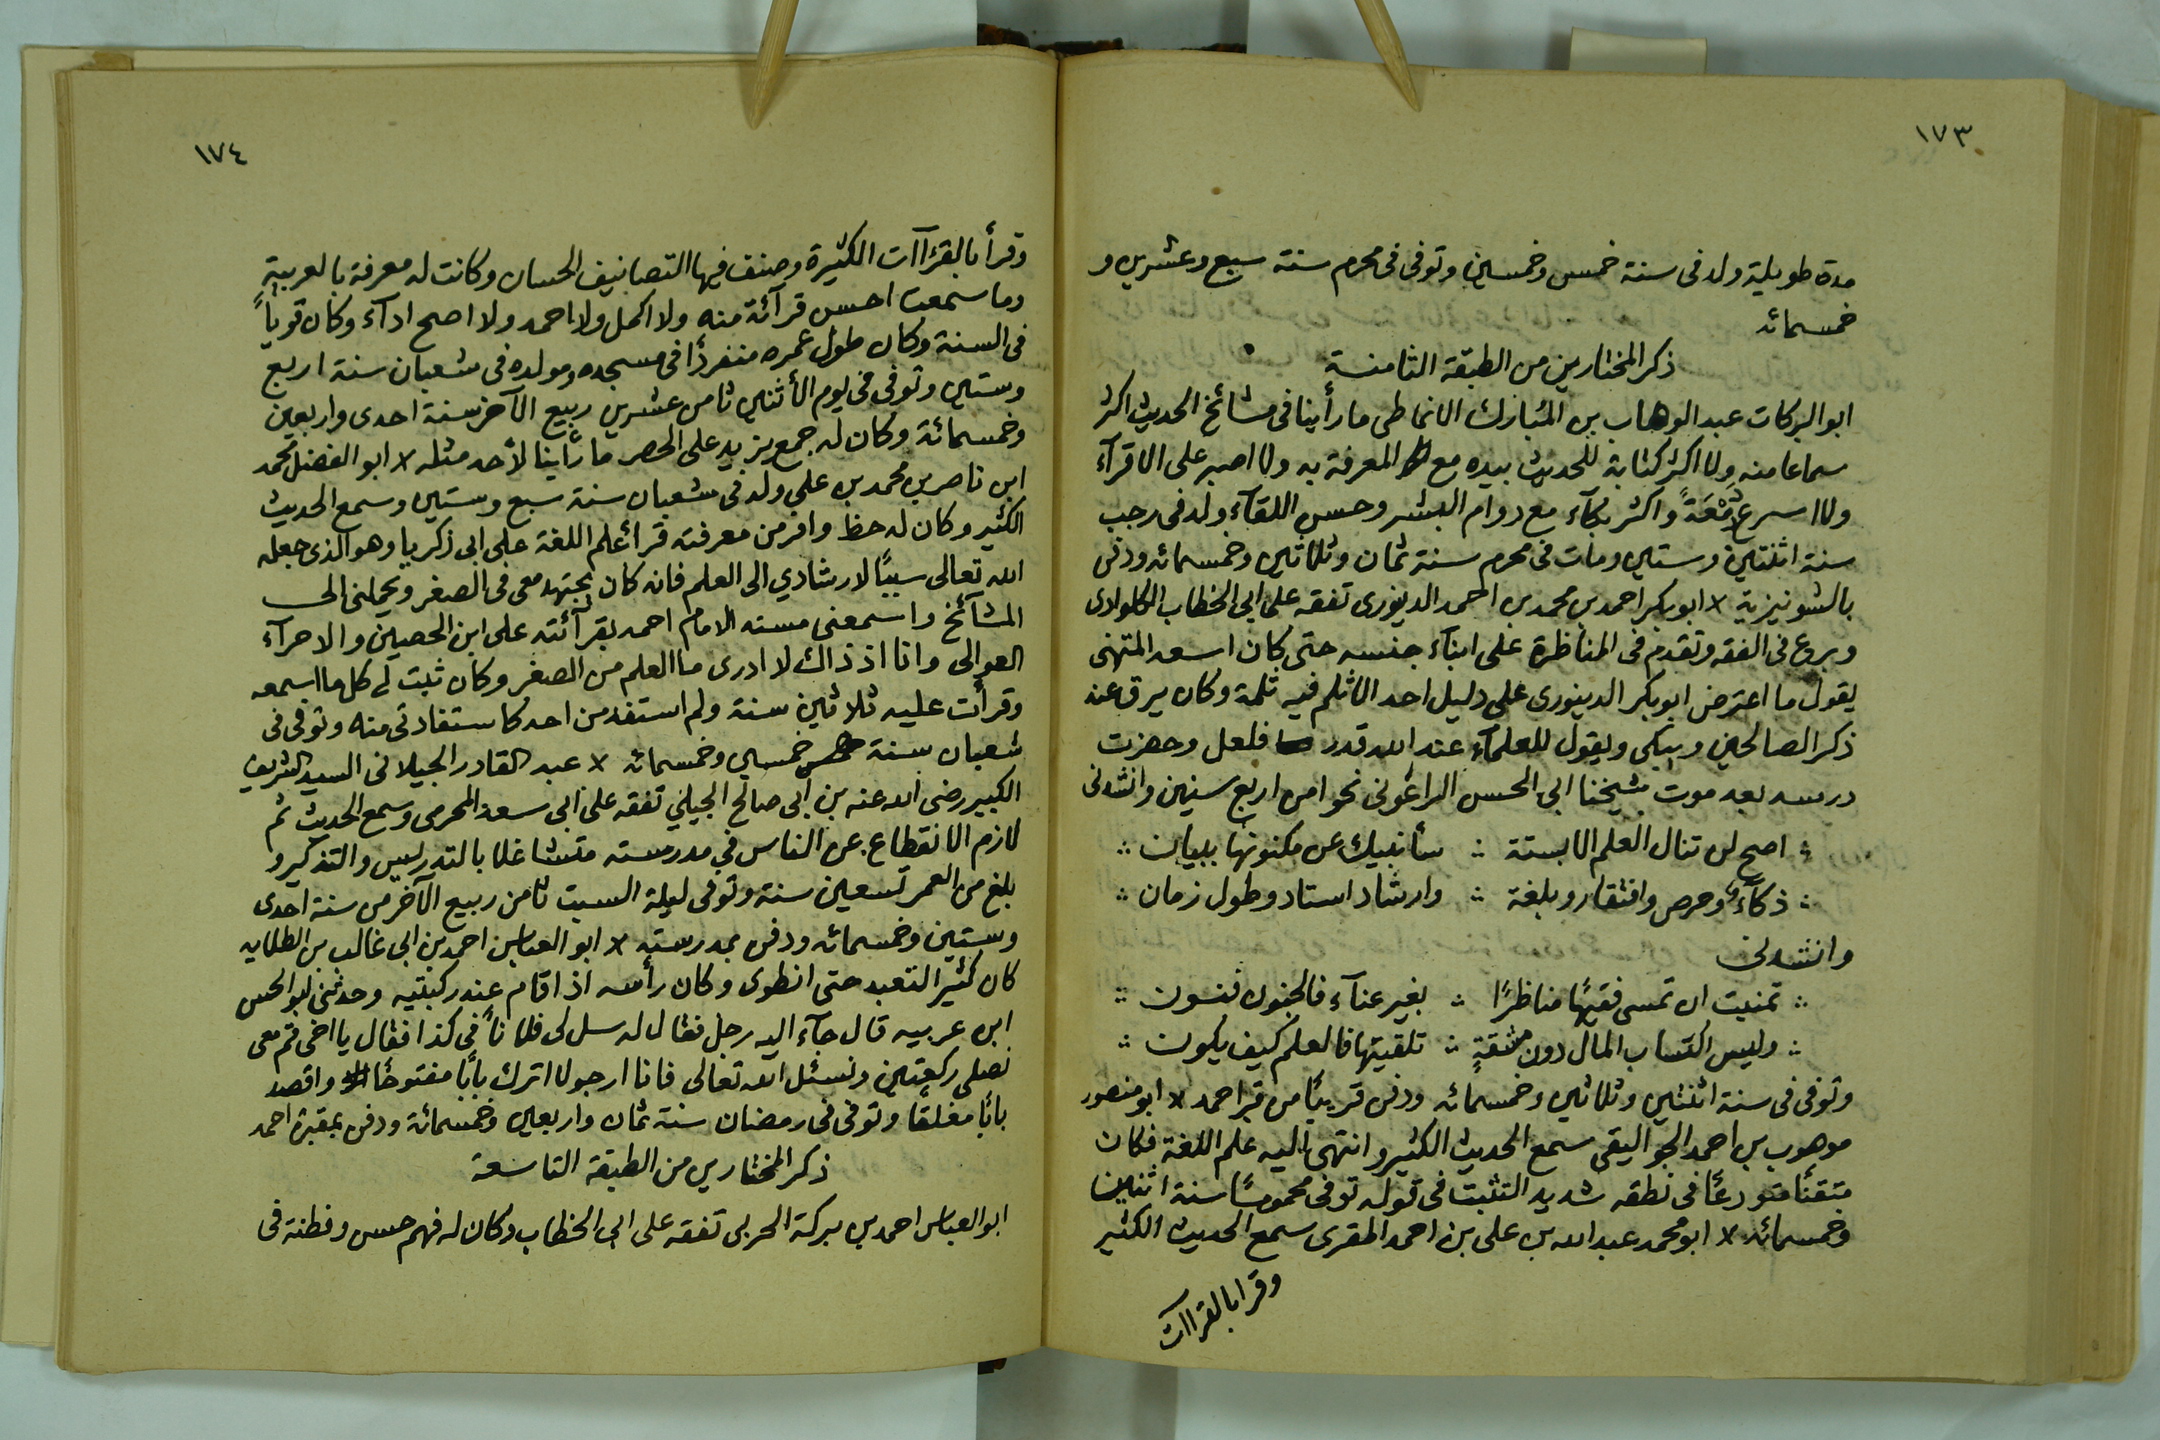 ١٧٣
مدة طويلة ولد فى سنة خمس وخمسين وتوفى فى محرم سنة سبع وعشرين و
خمسمائه
ذكر المختارين من الطبقة الثامنة
ابو البركات عبد الوهاب بن المبارك الانماطى ما رأينا فى مشائخ الحديث اكثر
سماعا منه ولا اكثر كتابة للحديث بيده مع المعرفة به ولا اصبر على الاقرآء
ولا اسرع دَمْعَةً واكثر بكآء مع دوام البشر وحسن اللقآء ولد فى رجب
سنة اثنتين وستين ومات فى محرم سنة ثمان وثلاثين وخمسمائه ودفن
بالشونيزية × ابوبكر احمد بن محمد بن احمد الدينورى تفقه على ابى الخطاب الكلوادى
وبرع فى الفقه وتقدم فى المناظرة على ابنآء جنسه حتى كان اسعد المتهنى
يقول ما اعترض ابوبكر الدينورى على دليل احد الا ثلم فيه ثلمة وكان يرق عند
ذكر الصالحين ويبكى ويقول للعلمآء عند الله قدر فلعل وحضرت
درسه بعد موت شيخنا ابى الحسن الراغونى نحوا من اربع سنين وانشدنى
اصح لن تنال العلم الا بستة ∴ سأنبيك عن مكنونها ببيان ∴
ذكآء وحرص وافتقار وبلغة ∴ وارشاد استاد وطول زمان ∴
وانشدنى
∴ تمنيت ان تمسى فقيهًا مناظرًا ∴ بغير عنآء فالجنون فنون ∴
∴ وليس اكتساب المال دون مشقةٍ ∴ تلقيتها فالعلم كيف يكون ∴
وتوفى فى سنة اثنتين وثلاثين وخمسمائه ودفن قريبًا من قبر احمد × ابو منصور
موهوب بن احمد الجواليقى سمع الحديث الكثير وانتهى اليه علم اللغة فكان
متقنًا متورعًا فى نطقه شديد التثبت فى قوله توفى محمومًا سنة اثنين
وخمسمائه × ابو محمد عبد الله بن على بن احمد المقرى سمع الحديث الكثير
وقرا بالقراات
١٧٤
وقرأ بالقرآات الكثيرة وصنف فيها التصانيف الحسان وكانت له معرفة بالعربية
وما سمعت احسن قرآئة منه ولا اكمل ولا احمد ولا اصح ادآء وكان قويًا
فى السنة وكان طول عمره منفردًا فى مسجده ومولده فى شعبان سنة اربع
وستين وتوفى فى يوم الأثنين ثامن عشرين ربيع الآخر سنة احدى واربعين
وخمسمائة وكان له جمع يزيد على الحصر ما رأينا لأحد مثله × ابو الفضل محمد
ابن ناصر بن محمد بن على ولد فى شعبان سنة سبع وستين وسمع الحديث
الكثير وكان له حظ وافر من معرفته قرأ علم اللغة على ابى ذكريا وهو الذى جعله
الله تعالى سببًا لارشادي الى العلم فانه كان يجتهد معى فى الصغر ويحملنى الى
المشآئخ واسمعنى مسند الامام احمد بقرآئته على ابن الحصين والاحرآء
العوالى وانا اذ ذاك لا ادرى ما العلم من الصغر وكان ثبت لى كل ما اسمعه
وقرأت عليه ثلاثين سنة ولم استفد من احد كاستفادتى منه وتوفى فى
شعبان سنة خمسين وخمسمائه × عبد القادر الجيلانى السيد الشريف
الكبير رضى الله عنه بن ابى صالح الجيلي تفقه على ابى سعد المحرمى وسمع الحديث ثم
لازم الانقطاع عن الناس في مدرسته متشاغلا بالتدريس والتذكير و
بلغ من العمر تسعين سنة وتوفى ليلة السبت ثامن ربيع الآخر من سنة احدى
وستين وخمسمائه ودفن بمدرسته × ابو العباس احمد بن ابى غالب بن الطلايه
كان كثير التعبد حتى انطوى وكان رأسه اذا قام عند ركبتيه وحدثنى ابو الحسن
ابن عريبه قال جآء اليه رجل فقال له سل لى فلانًا فى كذا فقال يا اخى قم معى
نصلى ركعتين ونسئل الله تعالى فانا ارجو لا اترك بابًا مفتوحًا واقصد
بابًا مغلقًا وتوفى فى رمضان سنة ثمان واربعين وخمسمائة ودفن بمقبرة احمد
ذكر المختارين من الطبقة التاسعة
ابو العباس احمد بن بركة الحربى تفقه على ابى الخطاب وكان له فهم حسن وفطنة فى